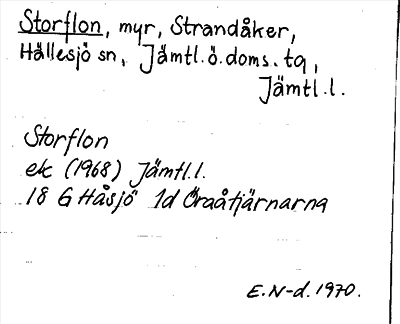 Storflon, myr, Strandåker,
Hällesjö sn, Jämtl.ö.doms.tg,
Jämtl.l.
Storflon
ek (1968) Jämtl.l.
18 G Håsjö 1d Öraåtjärnarna
E.N-d. 1970.